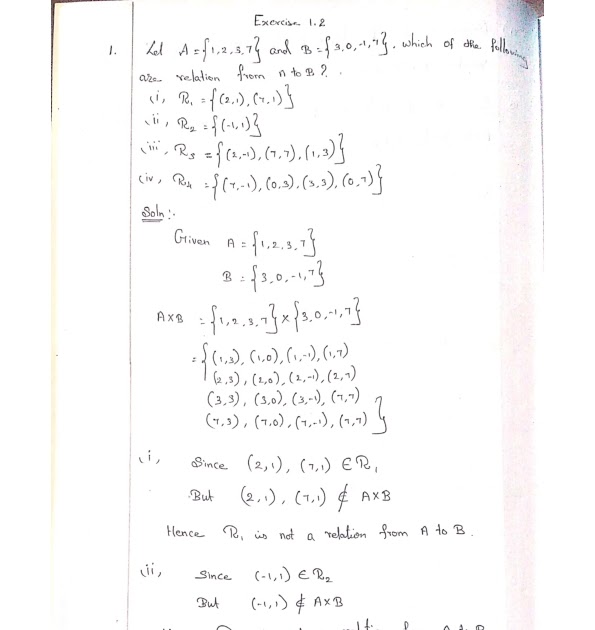 Exercise 1.2
1. Let A = {1,2,3,7} and B = {3,0,-1,7}. which of the following
are relation from A to B ?.
(i, R₁ = {(2,1),(7,1)}
(ii, R₂ = {(-1,1)}
(iii, R₃ = {(2,-1),(7,7),(1,3)}
(iv, R₄ = {(7,-1),(0,3),(3,3),(0,7)}
Soln :-
Given A = {1,2,3,7}
B = {3,0,-1,7}
A×B = {1,2,3,7} × {3,0,-1,7}
= {(1,3), (1,0), (1,-1), (1,7)
(2,3), (2,0), (2,-1), (2,7)
(3,3), (3,0), (3,-1), (7,7)
(7,3), (7,0), (7,-1), (7,7)}
(i, Since (2,1), (7,1) ∈ R₁
But (2,1), (7,1) ∉ A×B
Hence R₁ is not a relation from A to B.
(ii, Since (-1,1) ∈ R₂
But (-1,1) ∉ A×B